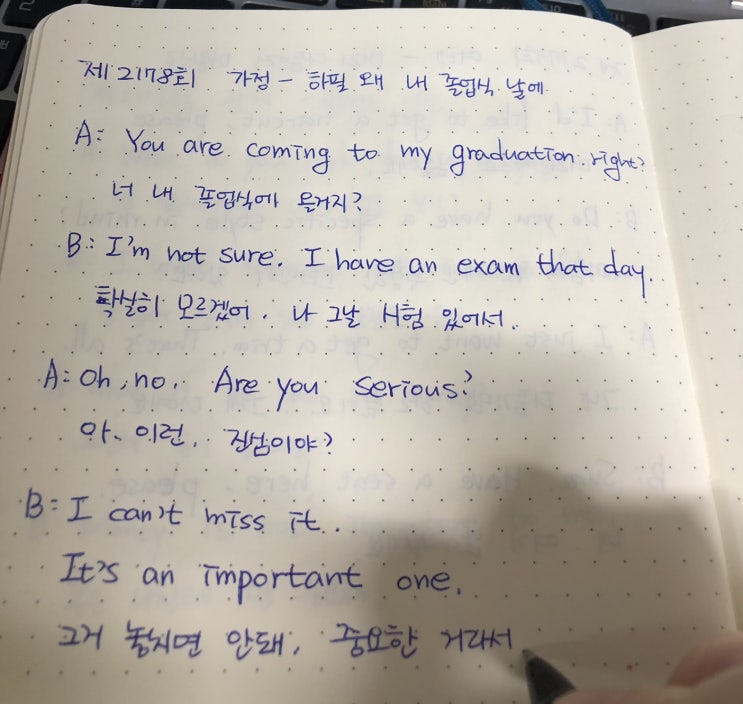 제2178회 가정 - 하필 왜 내 졸업식 날에
A: You are coming to my graduation. right?
너 내 졸업식에 올거지?
B: I'm not sure. I have an exam that day.
확실히 모르겠어. 나 그날 시험 있어서.
A: Oh, no. Are you serious?
아, 이런. 진심이야?
B: I can't miss it..
It's an important one.
그거 놓치면 안돼. 중요한 거라서